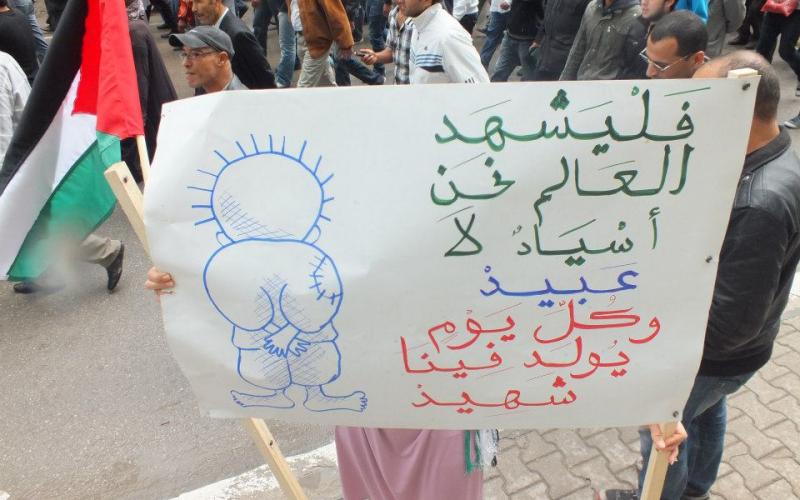 فَلْيَشهَد
العالم نحنَ
أسْيادُ لا
عَبيدْ
وكُلِّ يَوْمٍ
يُولد فينَا
شَهِيدْ